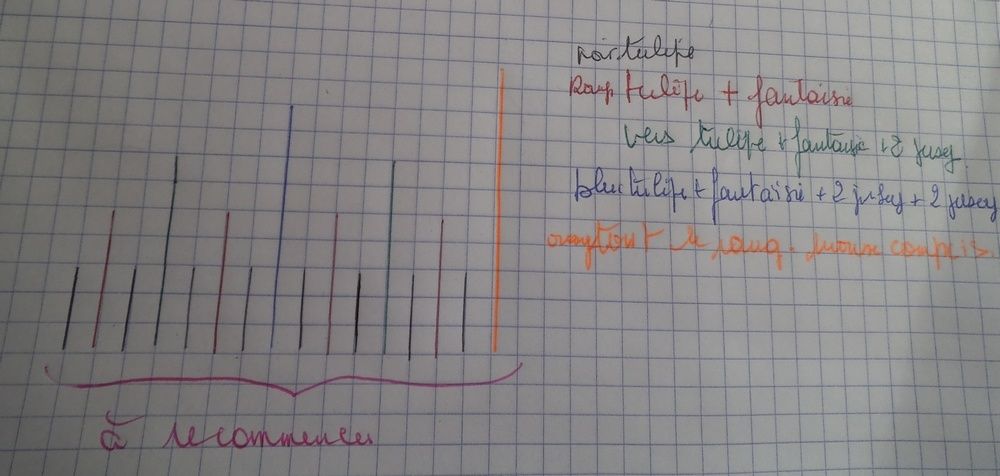 noir tulipe
Roug tulipe + fantaisie
vers tulipe + fantaisie + 2 jusey.
bleu tulipe + fantaisie + 2 jusey + 2 jusey
tout le rang. compris.
à recommencer